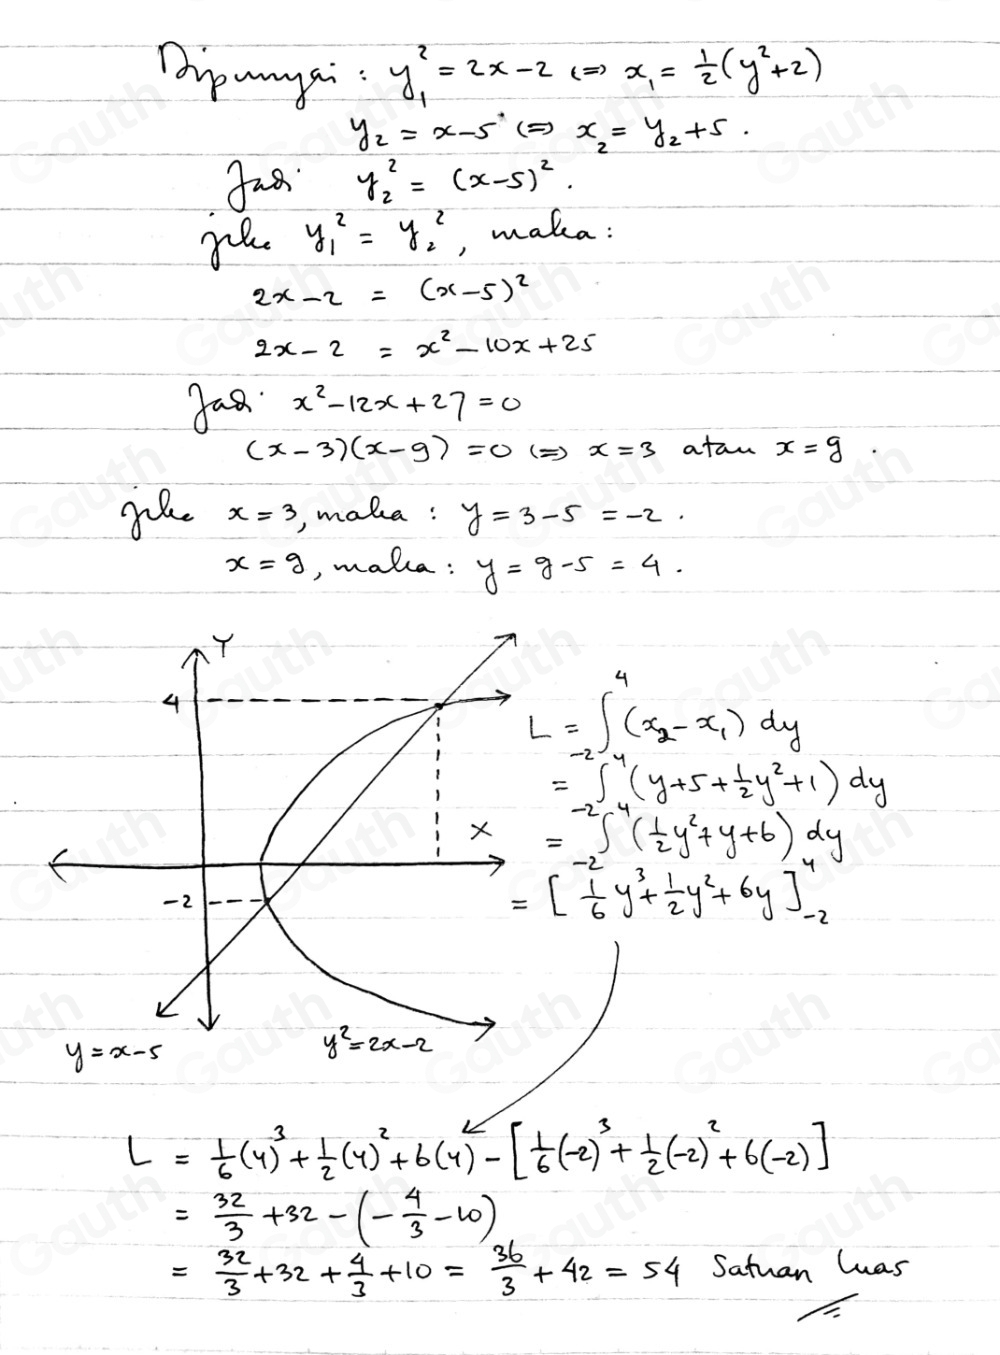 Dipunyai : y₁² = 2x-2 <=> x₁ = 1/2(y²+2)
y₂ = x-5 <=> x₂ = y₂+5.
Jadi y₂² = (x-5)².
jika y₁² = y₂², maka :
2x-2 = (x-5)²
2x-2 = x²-10x+25
Jadi x²-12x+27=0
(x-3)(x-9) =0 <=> x=3 atau x=9.
jika x=3, maka : y=3-5 =-2.
x=9, maka : y=9-5 = 4.
Y
4
X
-2
y=x-5
y²=2x-2
L = ∫₋₂⁴ (x₂-x₁) dy
= ∫₋₂⁴ (y+5+1/2y²+1) dy
= ∫₋₂⁴ (1/2y²+y+6) dy
= [1/6y³+1/2y²+6y]₋₂⁴
L = 1/6(4)³+1/2(4)²+6(4)-[1/6(-2)³+1/2(-2)²+6(-2)]
= 32/3+32-(-4/3-10)
= 32/3+32+4/3+10 = 36/3+42=54 Satuan luas
Gauth